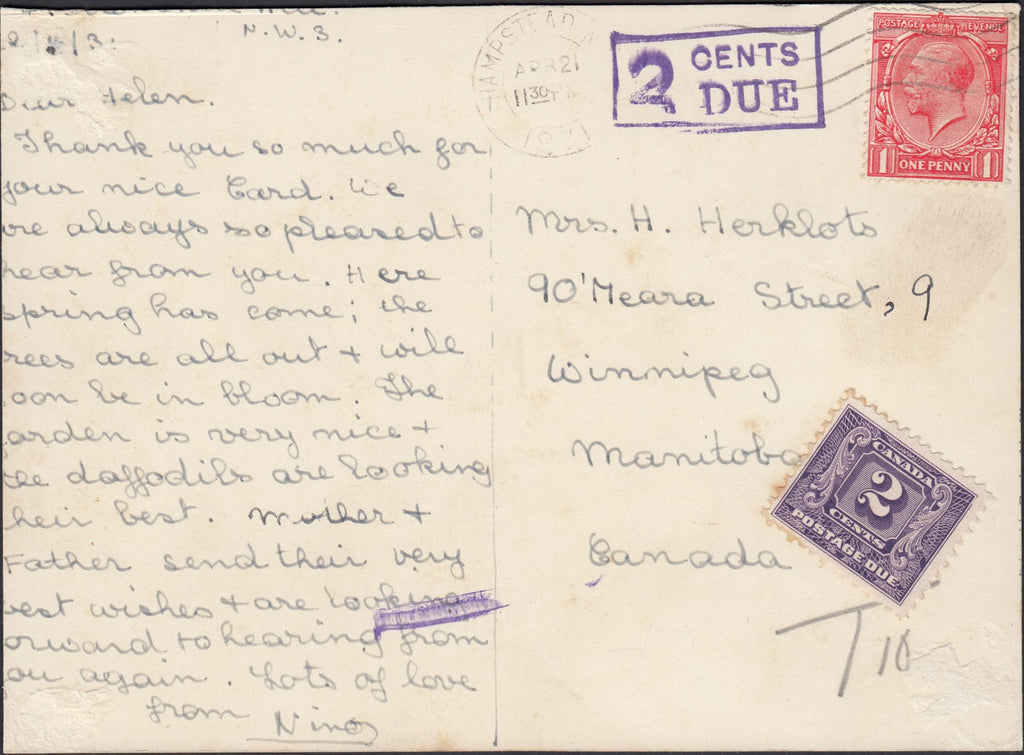 N.W.3.
Dear Helen.
Thank you so much for
your nice Card. We
are always so pleased to
hear from you. Here
spring has come; the
rees are all out + will
oon be in bloom. The
arden is very nice +
the daffodils are looking
heir best. Mother +
Father send their very
best wishes + are looking
orward to hearing from
ou again. Lots of love
from Nina
HAMPSTEAD
APR 21
11 30 PM
2 CENTS
DUE
POSTAGE REVENUE
1 ONE PENNY 1
Mrs. H. Herklots
9 O'Meara Street, 9
Winnipeg
Manitoba
Canada
CANADA
2
CENTS
POSTAGE DUE
T 10